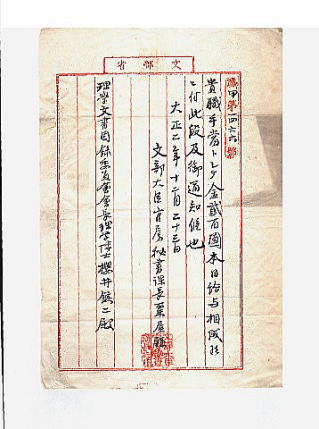 文部省
甲第一四六六號
貴職手當トシテ金貳百圓本日給与相成候
ニ付此段及御通知候也
大正二年十二月二十三日
文部大臣官房秘書課長粟屋謙
理學文書目録委員會委員長理學博士櫻井錠二殿